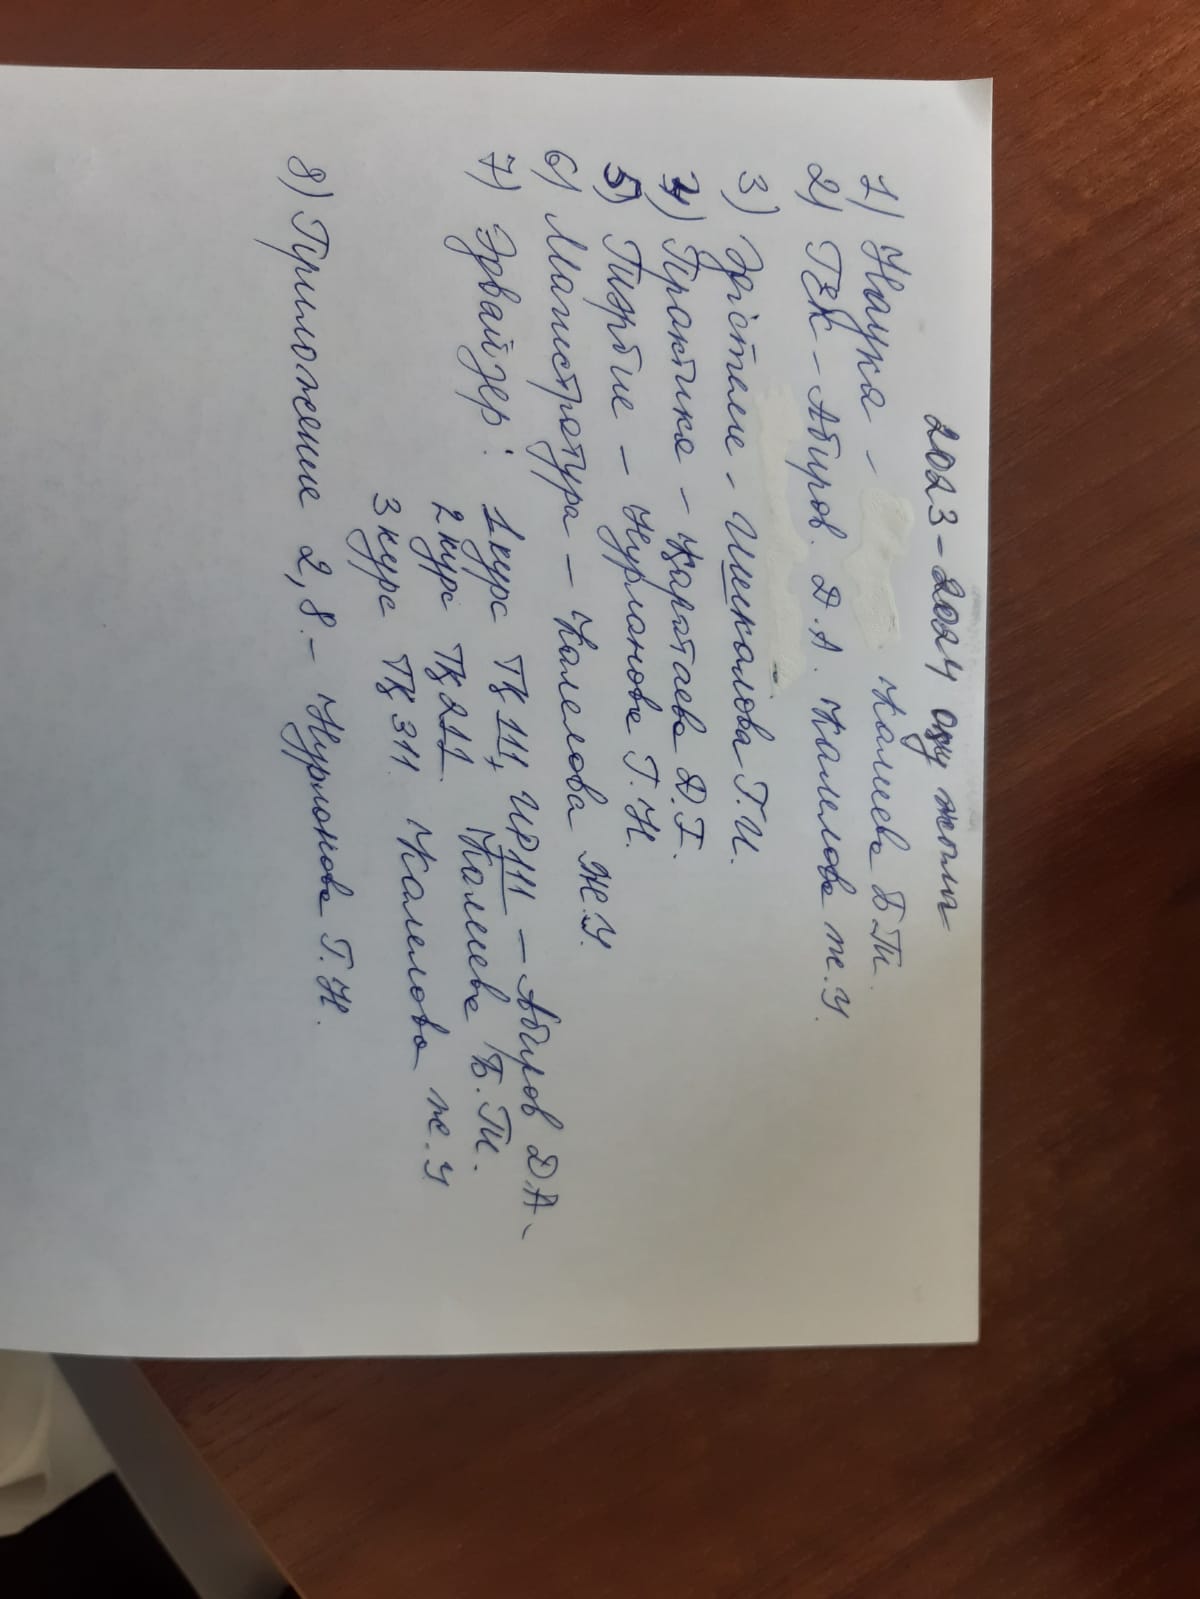 2023-2024 оқу жылы
1) Наука - Калиева Б.Т.
2) ГЗК - Абиров. Д.А. Калелова Ж.У.
3) Әдістеме - Ишкалова Г.И.
4) Практика - Қаратаева Д.Г.
5) Тәрбие - Нурманова Г.Н.
6) Магистратура - Калелова Ж.У.
7) Эдвайзер: 1 курс ТҚ 111, ИР111 - Абиров Д.А.
2 курс ТҚ 211 Калиева Б.Т.
3 курс ТҚ 311 Калелова Ж.У
8) Приложение 2,8 - Нурманова Г.Н.